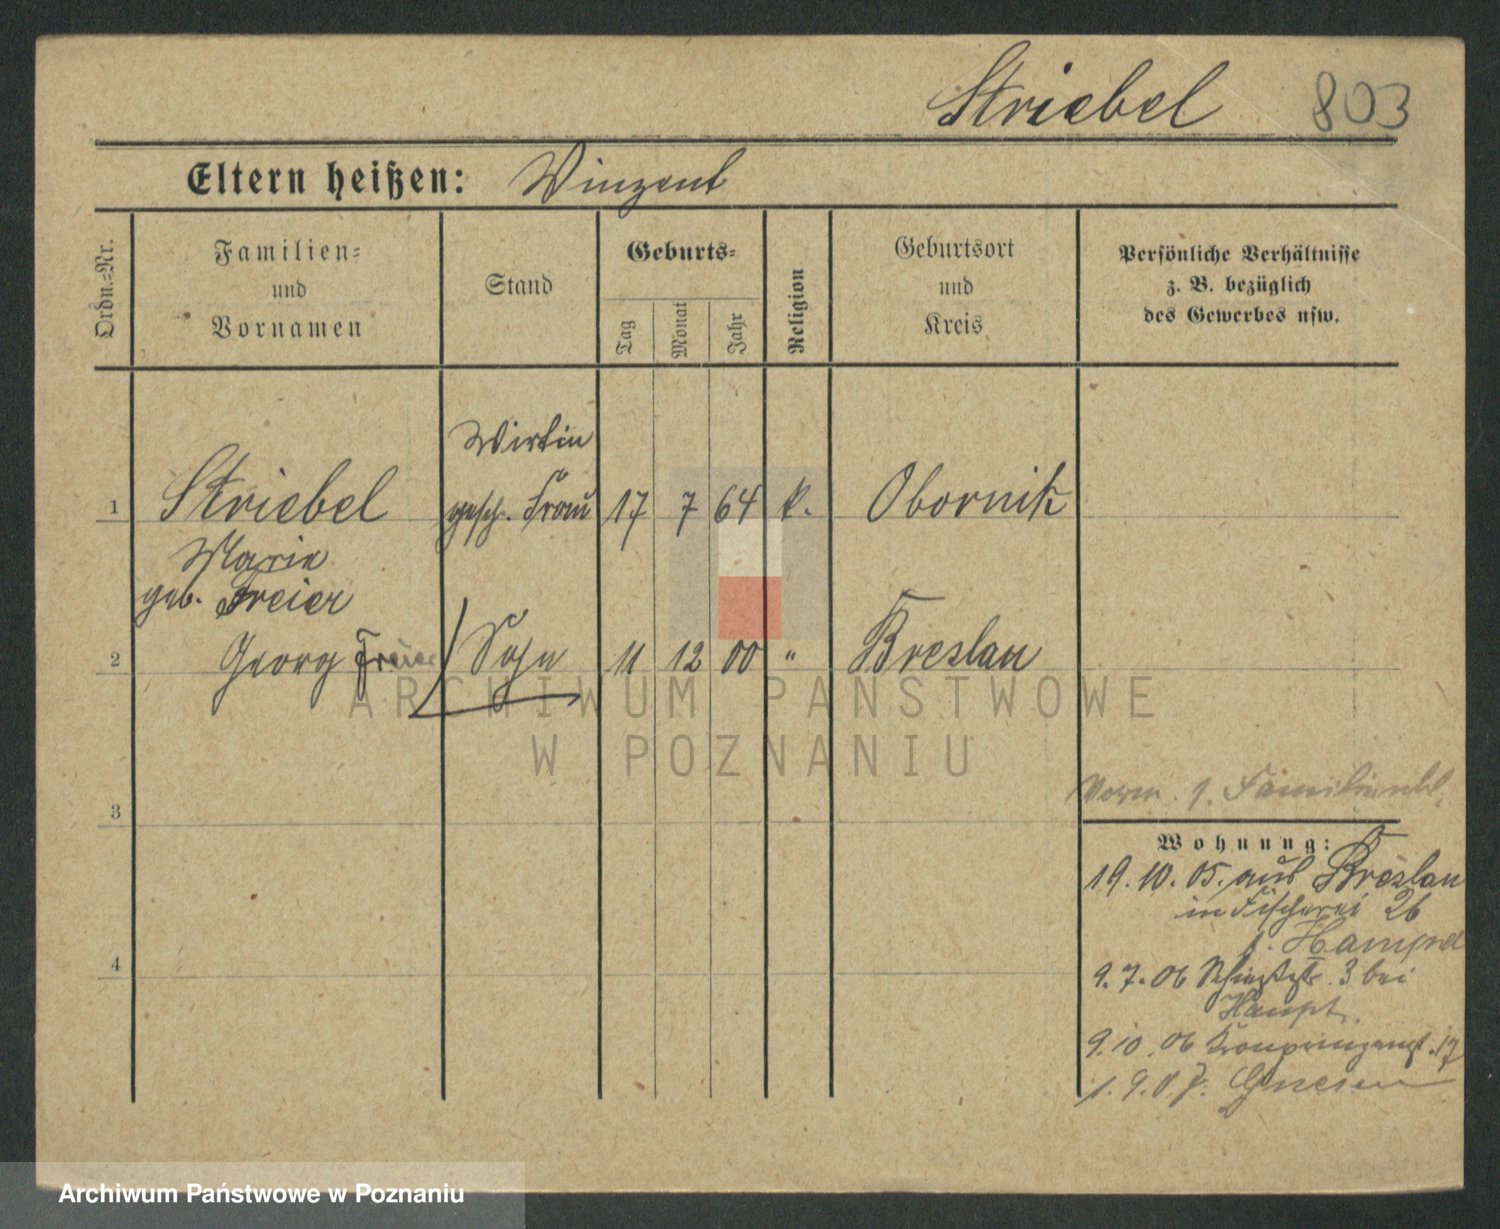 Striebel 803
Eltern heißen: Winzent
Ordn.=Nr.
Familien=
und
Vornamen
Stand
Geburts=
Tag
Monat
Jahr
Religion
Geburtsort
und
Kreis
Persönliche Verhältnisse
z. B. bezüglich
des Gewerbes usw.
Wirtin
1 Striebel gesch. Frau 17 7 64 k. Obornik
Marie
geb. Freier
2 Georg Freier Sohn 11 12 00 " Breslau
ARCHIWUM PAŃSTWOWE
W POZNANIU
3
Wohnung:
19. 10. 05. aus Breslau
in Fischerei 26
4
9. 7. 06 3 bei
Haupt.
9. 10. 06 Kronprinzenst. 17
1. 9. 07. Gnesen
Archiwum Państwowe w Poznaniu